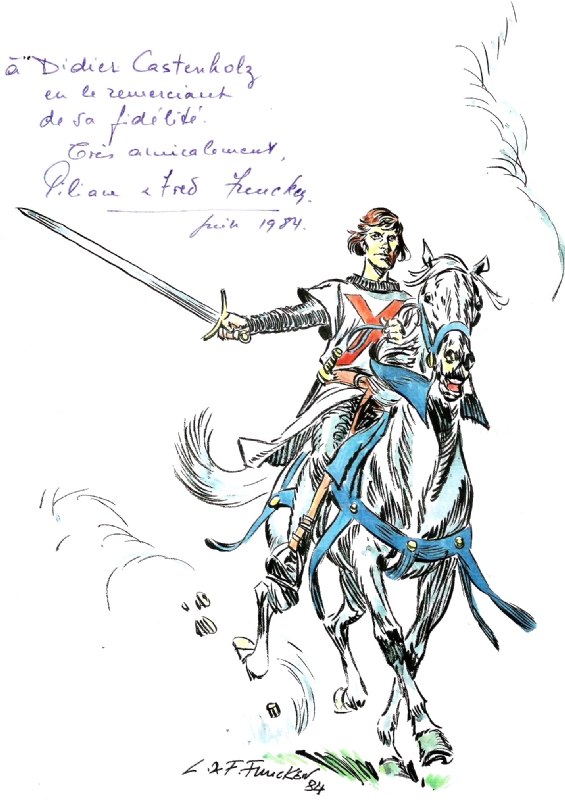 à Didier Castenholz
en le remerciant
de sa fidélité.
Très amicalement,
Liliane & Fred Funcken.
juin 1984.
L. & F. Funcken
84